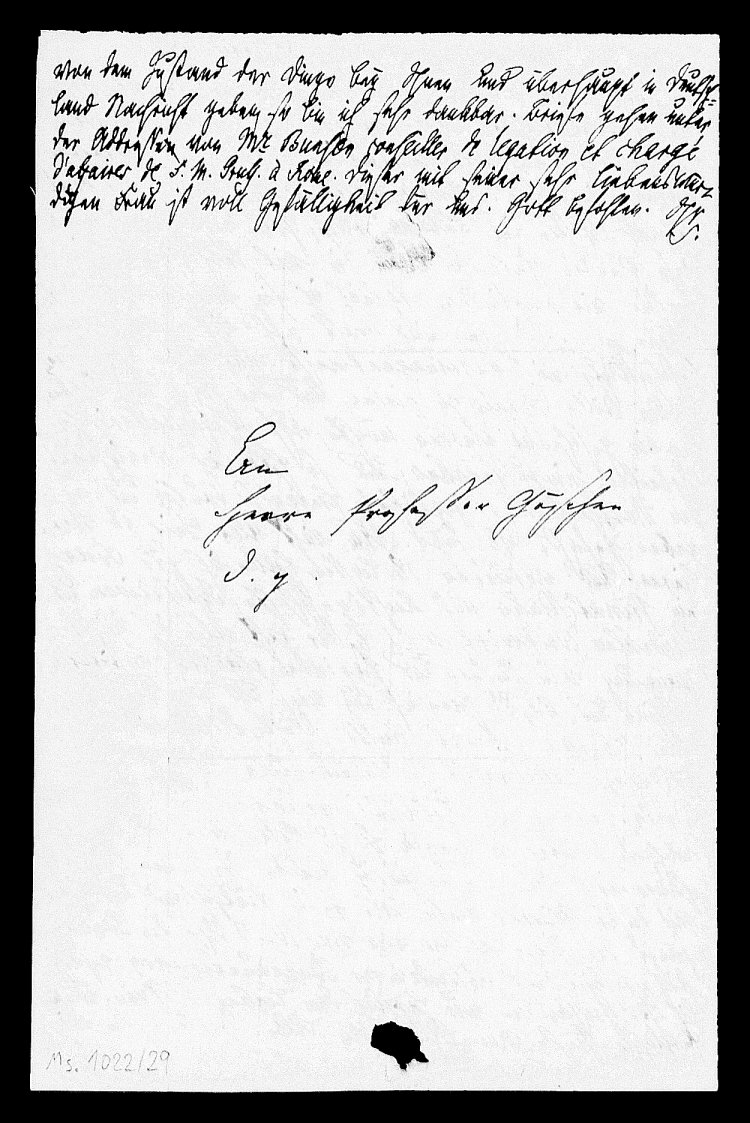 von dem Zustand der Dinge bey Ihnen und überhaupt in Deutsch-
land Nachricht geben, so bin ich sehr dankbar. Briefe gehen unter
der Addresse von Mr Bunsen conseiller de legation et chargé
d'afaires de S. M. Pruss. à Rome. Dieser mit seiner sehr liebenswür-
digen Frau ist voll Gefälligkeit für uns. Gott befohlen. Ihr
An
Herrn Professor Göschen
d. G.
Ms. 1022/29